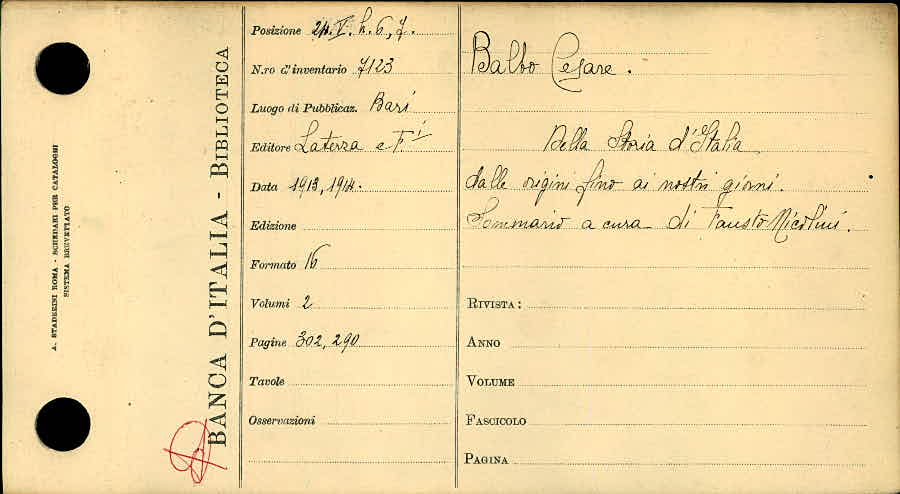 A. STADERINI ROMA - SCHEDARI PER CATALOGHI
SISTEMA BREVETTATO
BANCA D'ITALIA - BIBLIOTECA
Posizione 24. V. h. 6, 7.
N.ro d'inventario 7123
Luogo di Pubblicaz. Bari
Editore Laterza e Fi
Data 1913, 1914.
Edizione
Formato 16
Volumi 2
Pagine 302, 290
Tavole
Osservazioni
Balbo Cesare.
Della Storia d'Italia
dalle origini fino ai nostri giorni.
Sommario a cura di Fausto Nicolini.
RIVISTA:
ANNO
VOLUME
FASCICOLO
PAGINA